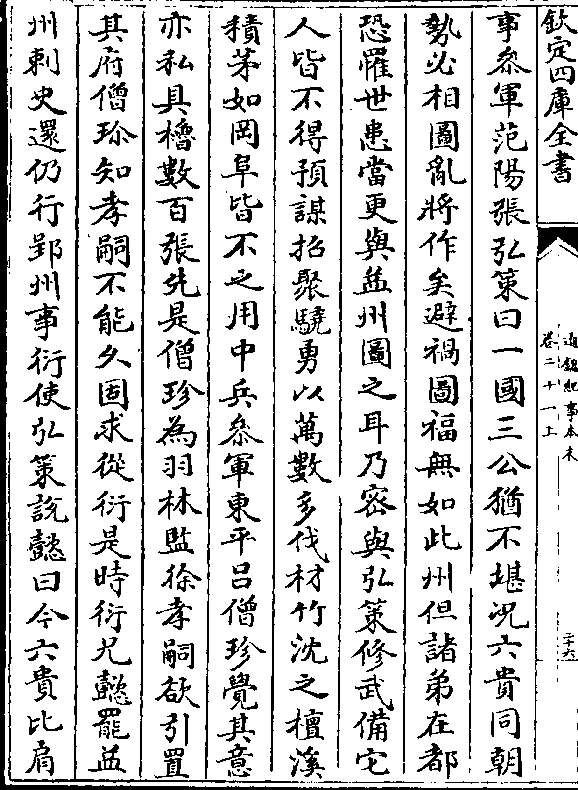 欽定四庫全書
通鑑紀事本末
卷二十一上
二十六
事參軍范陽張弘策曰一國三公猶不堪况六貴同朝
勢必相圖亂將作矣避禍圖福無如此州但諸弟在都
恐罹世患當更與益州圖之耳乃密與弘策修武備它
人皆不得預謀招聚驍勇以萬數多伐材竹沈之檀溪
積茅如岡阜皆不之用中兵參軍東平吕僧珍覺其意
亦私具櫓數百張先是僧珍為羽林監徐孝嗣欲引置
其府僧珍知孝嗣不能久固求從衍是時衍兄懿罷益
州刺史還仍行郢州事衍使弘策說懿曰今六貴比肩